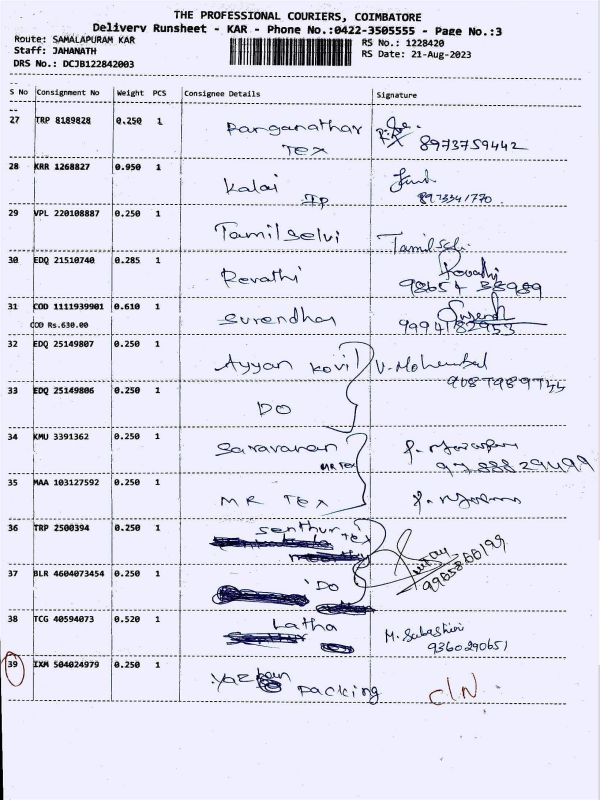 THE PROFESSIONAL COURIERS, COIMBATORE
Delivery Runsheet - KAR - Phone No.:0422-3505555 - Page No.:3
Route: SAMALAPURAM KAR
RS No.: 1228420
Staff: JAHANATH
RS Date: 21-Aug-2023
DRS No.: DCJB122842003
S No Consignment No Weight PCS Consignee Details Signature
27 TRP 8189828 0.250 1 Ranganathar
Tex 8973759442
28 KRR 1268827 0.950 1 Kalai
8973341770
29 VPL 220108887 0.250 1 Tamilselvi
30 EDQ 21510740 0.285 1 Revathi Revathi
98654 38989
31 COD 1111939901 0.610 1 Surendhar Surendh
COD Rs.630.00 9994182953
32 EDQ 25149807 0.250 1 Ayyan kovil
9087989744
33 EDQ 25149806 0.250 1 DO
34 KMU 3391362 0.250 1 Saravanan
MR Tex 9788829499
35 MAA 103127592 0.250 1 MR Tex
36 TRP 2500394 0.250 1 Senthur Tex
37 BLR 4604073454 0.250 1 DO
38 TCG 40594073 0.520 1 Latha M. Subashini
9360290651
39 IXM 504024979 0.250 1 packing CIN